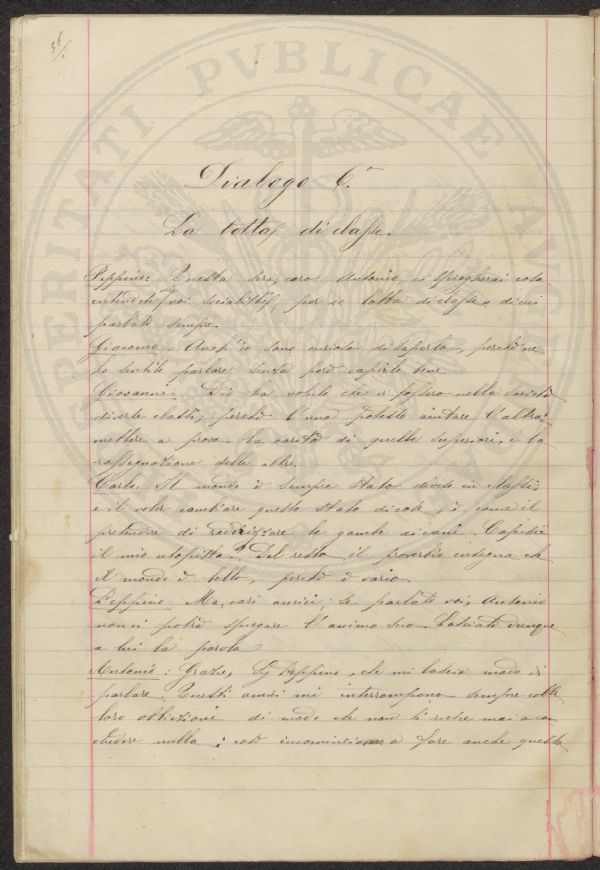 56/.
Dialogo 6.°
La lotta di classe.
Peppino: Questa sera, caro Antonio, ci spiegherai cosa
intendete voi socialisti, per la lotta di classe, di cui
parlate sempre.
Giacomo: Anch'io sono curioso di saperlo, perchè ne
ho sentito parlare senza però capirlo bene.
Giovanni: Dio ha voluto che vi fossero nella società
diverse classi, perchè l'una potesse aiutare l'altra,
mettere a prova la carità di quelle superiori, e la
rassegnazione delle altre.
Carlo. Il mondo è sempre stato diviso in classi,
e il voler cambiare questo stato di cose, è come il
pretendere di raddrizzare le gambe ai cani. Capisci
il mio utopista? Del resto il proverbio insegna che
il mondo è bello, perchè è vario.
Peppino Ma, cari amici, se parlate voi, Antonio
non ci potrà spiegare l'animo suo. Lasciate dunque
a lui la parola.
Antonio: Grazie, Peppino, che mi lascia modo di
parlare. Questi amici mi interrompono sempre colle
loro obbiezioni di modo che non si riesce mai a con
cludere nulla; così incominciano a fare anche questa
PERITATI PVBLICAE